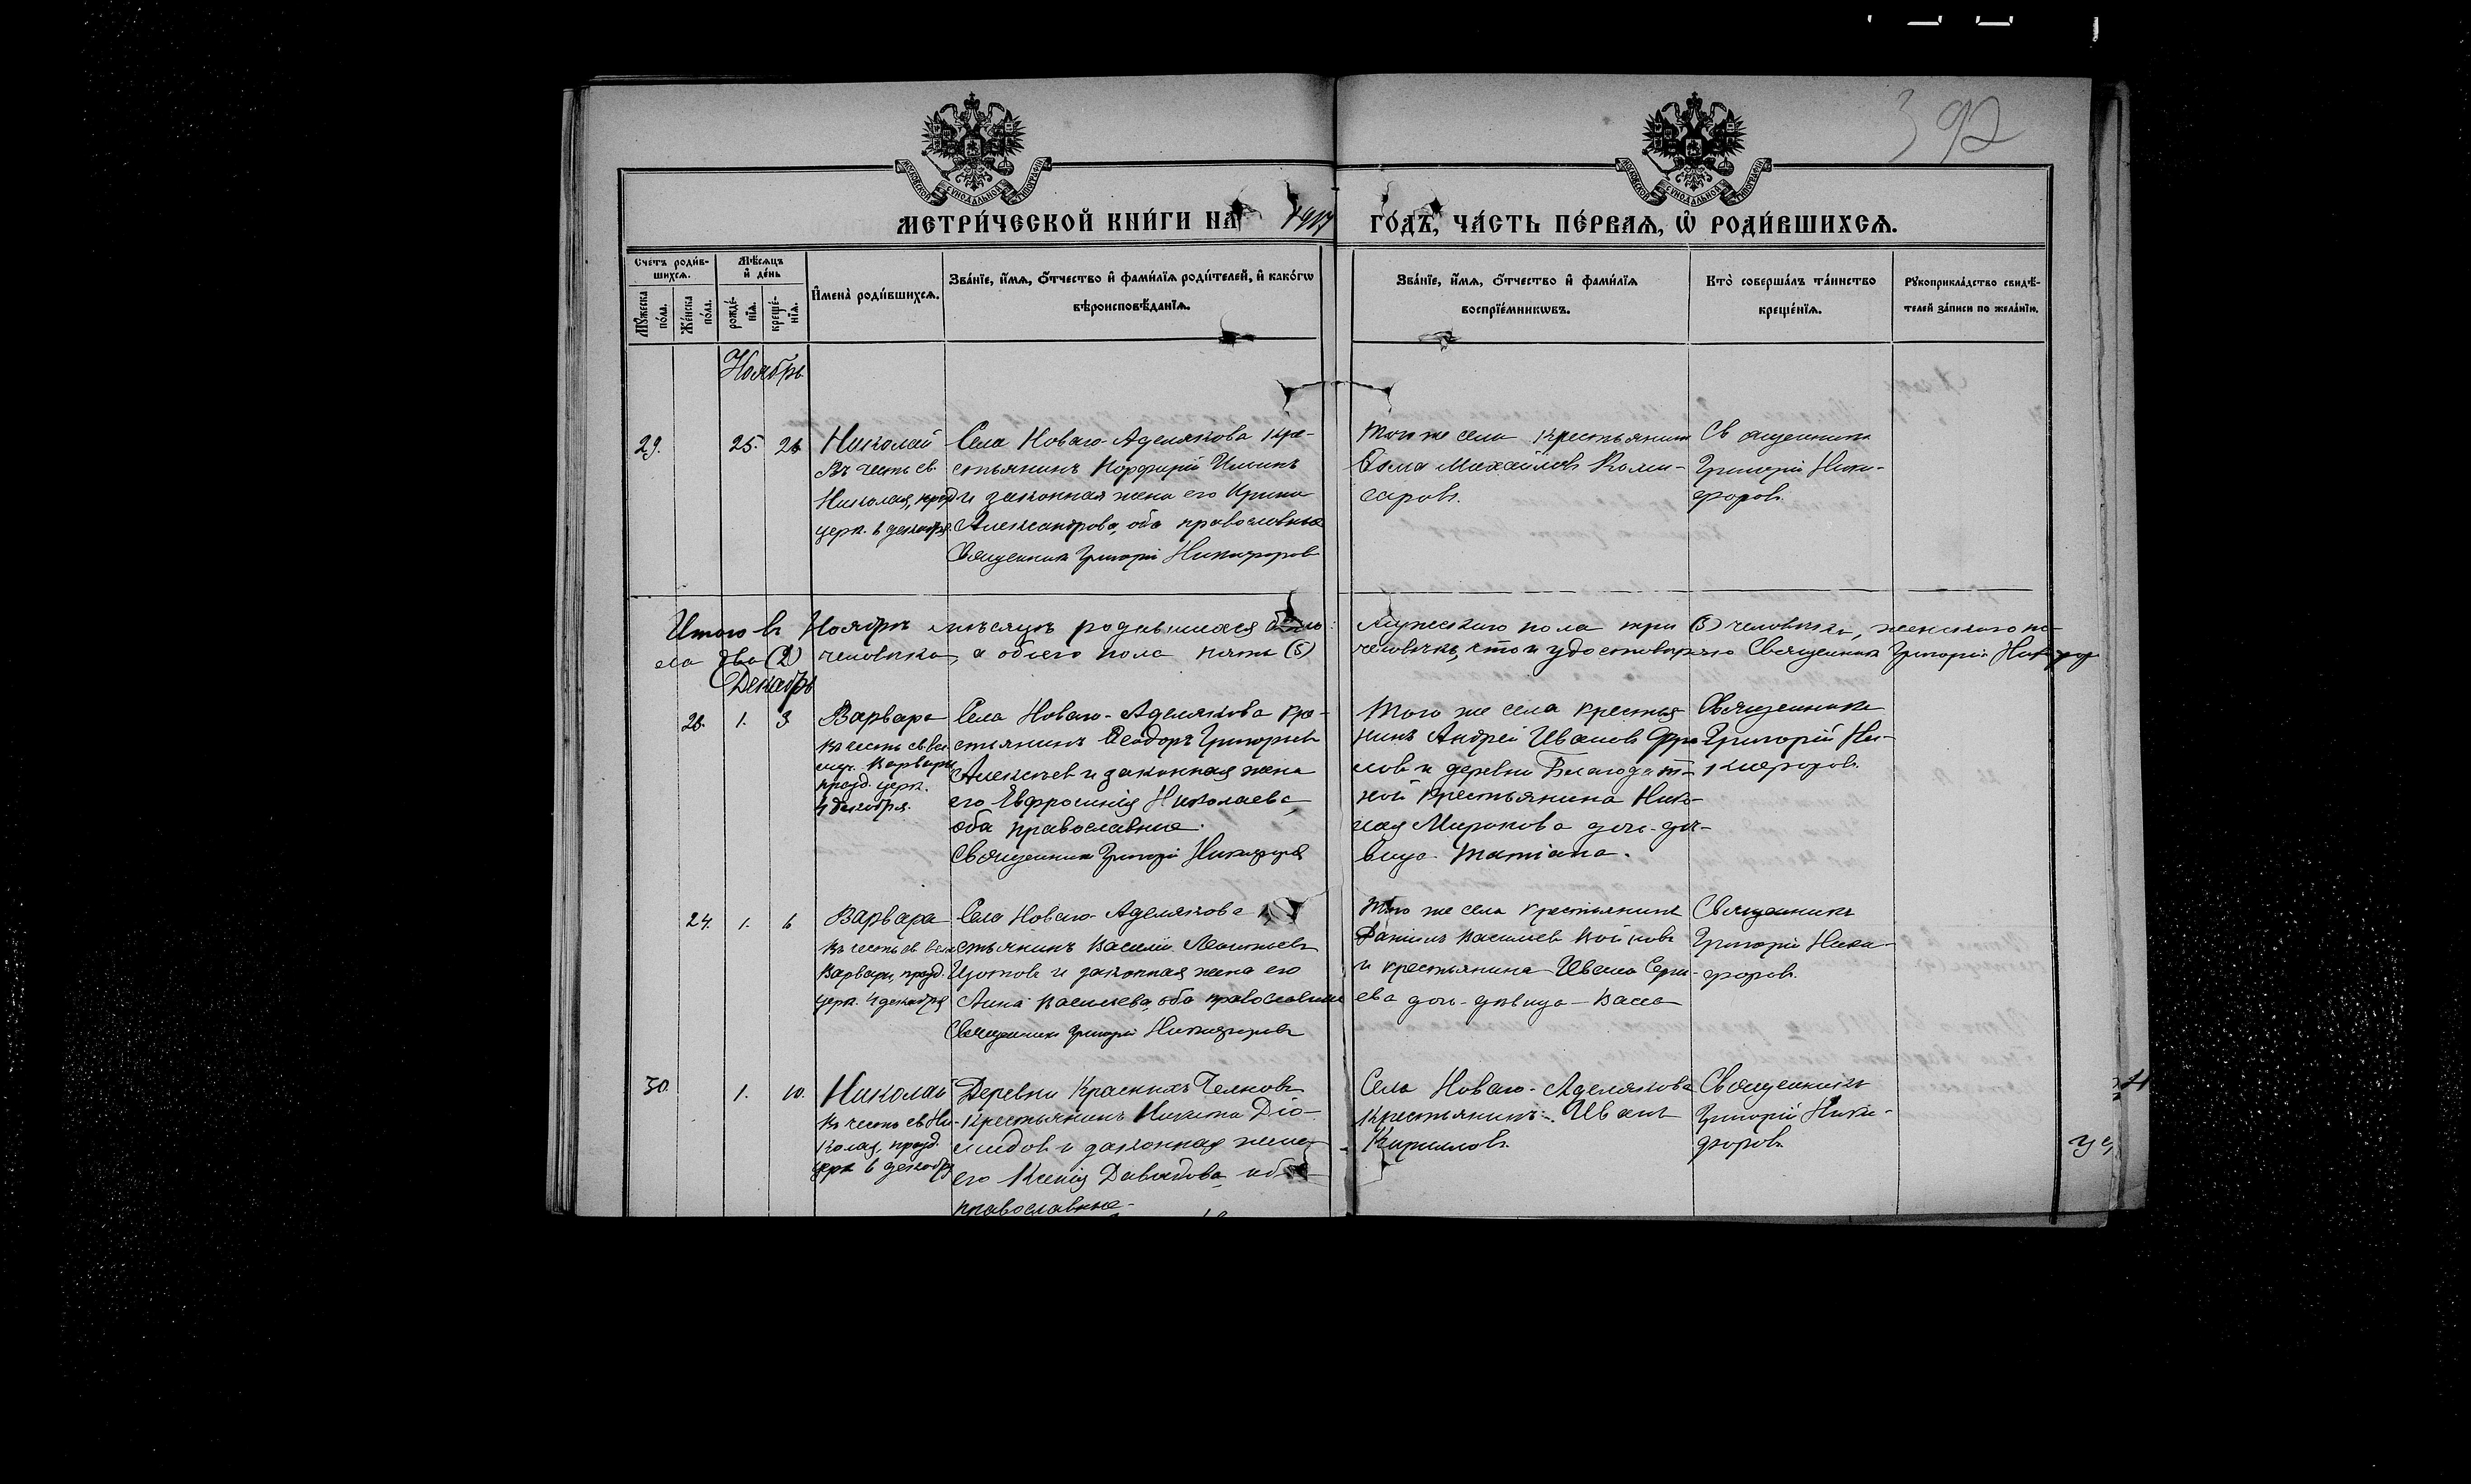 392
МОСКОВСКОЙ СѴНОДАЛЬНОЙ ТИПОГРАФІИ
МОСКОВСКОЙ СѴНОДАЛЬНОЙ ТИПОГРАФІИ
МЕТРИ́ЧЕСКОЙ КНИ́ГИ НА 1917 ГО́ДЪ, ЧА́СТЬ ПЕ́РВАЯ, Ѡ҆ РОДИ́ВШИХСЯ.
Сче́тъ роди́в-
шихся.
Мѣ́сяцъ
и҆ де́нь
Му́жеска
по́ла.
Же́нска
по́ла.
рожде́-
нїя.
креще́-
нїя.
И҆мена̀ роди́вшихся.
Зва́нїе, и҆́мя, ѻ҆́тчество и҆ фами́лїя роди́телей, и҆ како́гѡ
вѣроисповѣ́данїя.
Зва́нїе, и҆́мя, ѻ҆́тчество и҆ фами́лїя
воспрїе́мникѡвъ.
Кто̀ соверша́лъ та́инство
креще́нїя.
Рꙋкоприкла́дство свидѣ́-
телей за́писи по жела́нїю.
Ноябрь
29.
25.
Николай
Въ честь св.
Николая, празд.
церк. 6 декабря.
Села Новаго-Аделякова кре-
стьянинъ Порфирій Ильинъ
и законная жена его Ирина
Александрова, оба православные
Священникъ Григорій Никифоровъ
Того же села крестьянинъ
Ѳома Михайловъ Коми-
саровъ.
Священникъ
Григорій Ники-
форовъ.
Итого въ Ноябрѣ мѣсяцѣ родившихся было: мужескаго пола три (3) человѣка, женскаго по-
ла два (2) человѣка, а обоего пола пять (5) человѣкъ, что и удостовѣряю Священникъ Григорій Никифор
Декабрь
1.
3.
Варвара
въ честь св. вел
муч. Варвары
празд. церк.
4 декабря.
Села Новаго-Аделякова кре-
стьянинъ Ѳеодоръ Григорьев
Алексѣев и законная жена
его Евфросинія Николаева,
оба православные.
Священникъ Григорій Никифоров
Того же села крестья
нинъ Андрей Ивановъ
и деревни Благодат-
ной крестьянина Нико-
лая Миронова дочь-дѣ-
вица Татіана.
Священникъ
Григорій Ни-
кифоровъ.
24.
1.
6
Варвара
Въ честь св. вел
Варвары, празд.
церк. 4 декабря
Села Новаго-Аделякова
стьянинъ Василій Леонтьевъ
Изотовъ и законная жена его
Анна Васильева, оба православные
Священникъ Григорій Никифоровъ
Того же села крестьянинъ
Даніилъ Васильевъ Войновъ
и крестьянина Ивана Серги-
ева дочь-дѣвица-Васса
Священникъ
Григорій Ники-
форовъ.
30.
1.
10.
Николай
Въ честь св. Ни-
колая, празд.
церк 6 декабр
Деревни Красныхъ Челновъ
крестьянинъ Никита Діо-
мидовъ и законная жена
его Ксенія Давыдова, оба
православные.
Села Новаго-Аделякова
крестьянинъ Иванъ
Кирилловъ.
Священникъ
Григорій Ники-
форовъ.